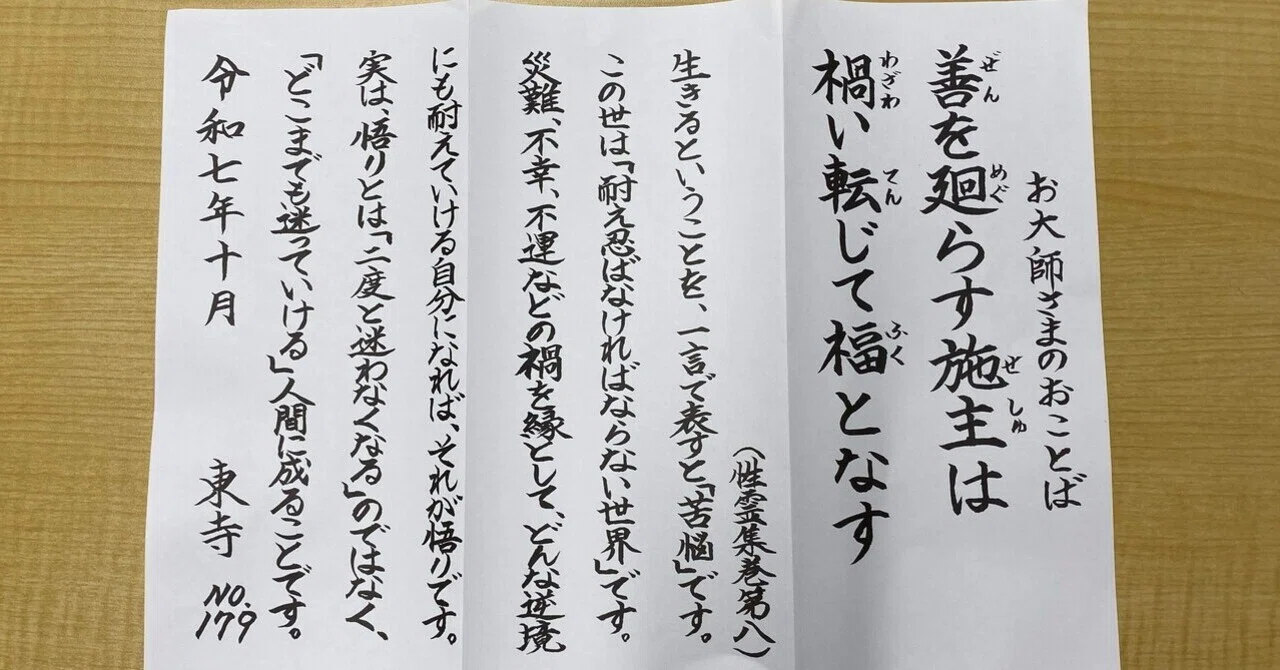 お大師さまのおことば
善を廻らす施主は
禍い転じて福となす
(性霊集巻第八)
生きるということを、一言で表すと「苦悩」です。
この世は「耐え忍ばなければならない世界」です。
災難、不幸、不運などの禍を縁として、どんな逆境
にも耐えていける自分になれば、それが悟りです。
実は、悟りとは「二度と迷わなくなる」のではなく、
「どこまでも迷っていける」人間に成ることです。
令和七年十月 東寺 NO.179